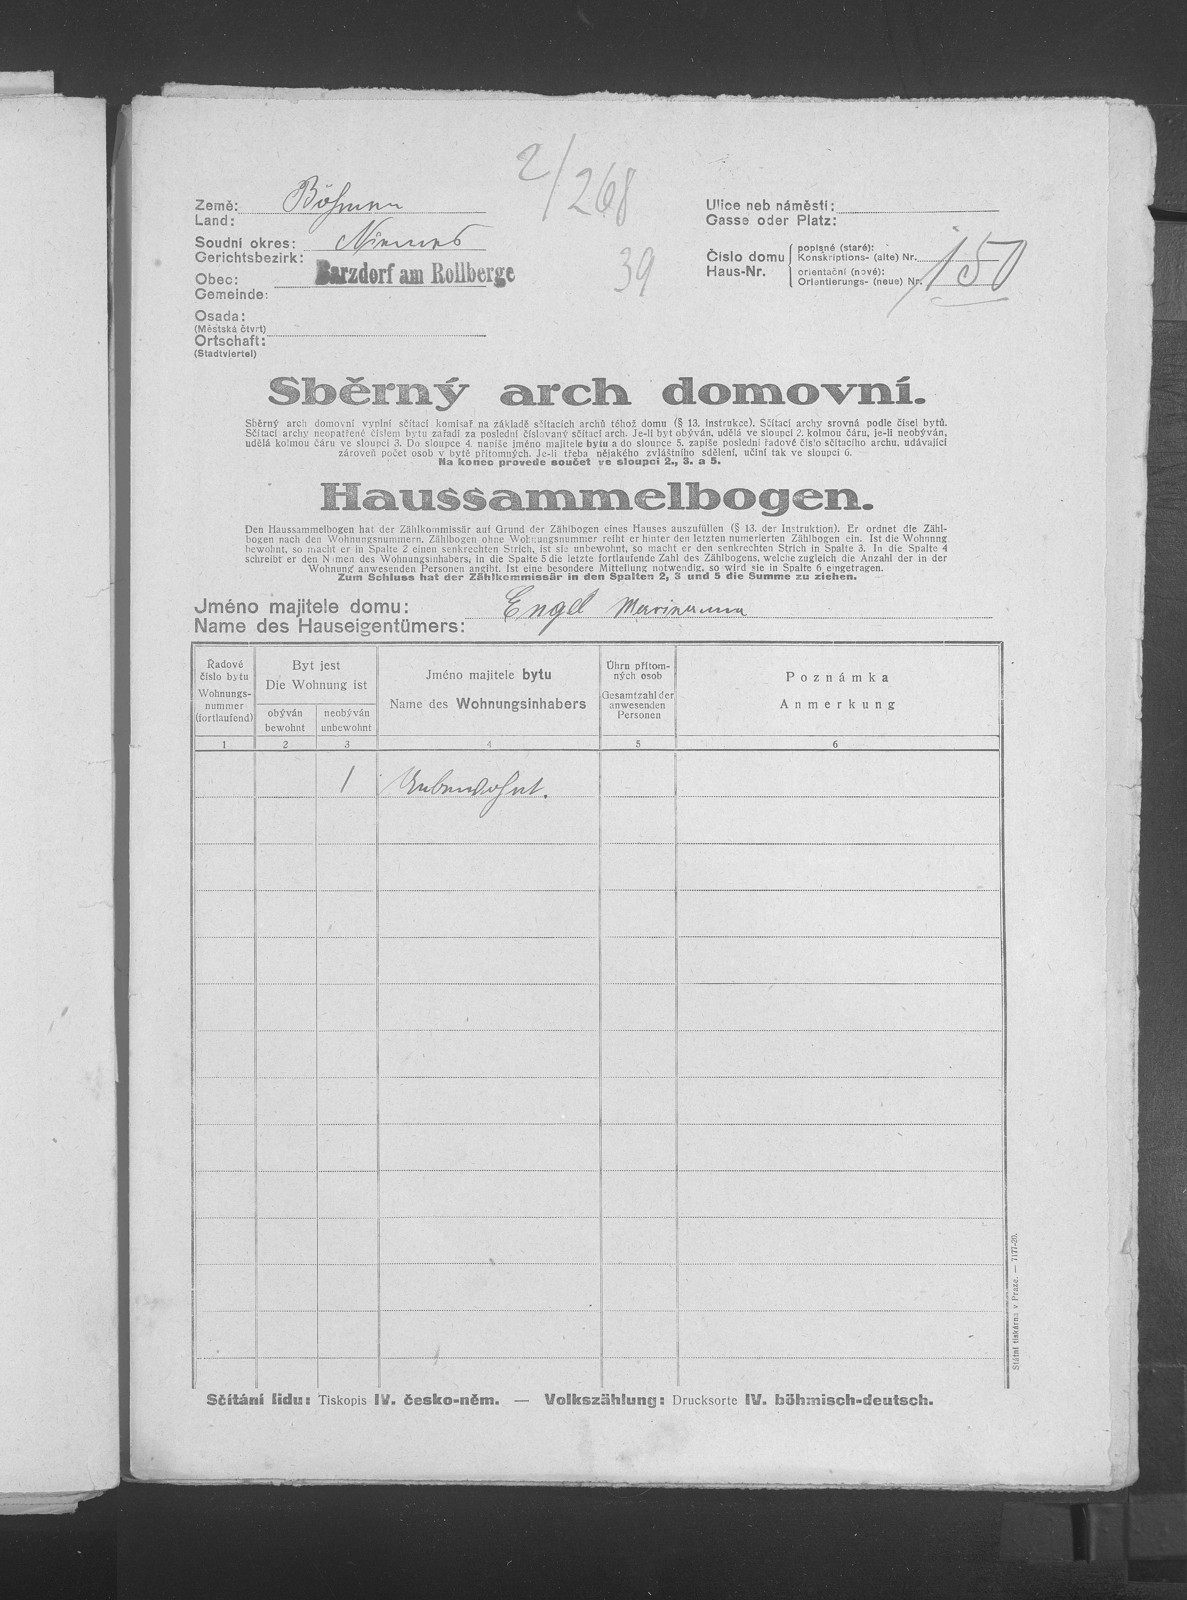 2/268
39
Země: Böhmen
Land:
Soudní okres: Niemes
Gerichtsbezirk:
Obec: Barzdorf am Rollberge
Gemeinde:
Osada:
(Městská čtvrt)
Ortschaft:
(Stadtviertel)
Ulice neb náměstí:
Gasse oder Platz:
Číslo domu
Haus-Nr.
popisné (staré):
Konskriptions- (alte) Nr.
orientační (nové):
Orientierungs- (neue) Nr.
150
Sběrný arch domovní.
Sběrný arch domovní vyplní sčítací komisař na základě sčítacích archů téhož domu (§ 13. instrukce). Sčítací archy srovná podle čísel bytů.
Sčítací archy neopatřené číslem bytu zařadí za poslední číslovaný sčítací arch. Je-li byt obýván, udělá ve sloupci 2. kolmou čáru, je-li neobýván,
udělá kolmou čáru ve sloupci 3. Do sloupce 4. napíše jméno majitele bytu a do sloupce 5. zapíše poslední řadové číslo sčítacího archu, udávající
zároveň počet osob v bytě přítomných. Je-li třeba nějakého zvláštního sdělení, učiní tak ve sloupci 6.
Na konec provede součet ve sloupci 2., 3. a 5.
Haussammelbogen.
Den Haussammelbogen hat der Zählkommissär auf Grund der Zählbogen eines Hauses auszufüllen (§ 13. der Instruktion). Er ordnet die Zähl-
bogen nach den Wohnungsnummern. Zählbogen ohne Wohnungsnummer reiht er hinter den letzten numerierten Zählbogen ein. Ist die Wohnnng
bewohnt, so macht er in Spalte 2 einen senkrechten Strich, ist sie unbewohnt, so macht er den senkrechten Strich in Spalte 3. In die Spalte 4
schreibt er den Namen des Wohnungsinhabers, in die Spalte 5 die letzte fortlaufende Zahl des Zählbogens, welche zugleich die Anzahl der in der
Wohnung anwesenden Personen angibt. Ist eine besondere Mitteilung notwendig, so wird sie in Spalte 6 eingetragen.
Zum Schluss hat der Zählkommissär in den Spalten 2, 3 und 5 die Summe zu ziehen.
Jméno majitele domu: Engel Marianna
Name des Hauseigentümers:
Řadové
číslo bytu
Wohnungs-
nummer
(fortlaufend)
Byt jest
Die Wohnung ist
obýván
bewohnt
neobýván
unbewohnt
Jméno majitele bytu
Name des Wohnungsinhabers
Úhrn přítom-
ných osob
Gesamtzahl der
anwesenden
Personen
Poznámka
Anmerkung
1 2 3 4 5 6
1 Unbewohnt.
Státní tiskárna v Praze. — 7177-20.
Sčítání lidu: Tiskopis IV. česko-něm. — Volkszählung: Drucksorte IV. böhmisch-deutsch.